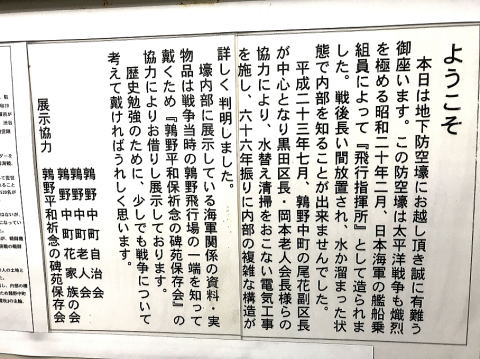 ようこそ
本日は地下防空壕にお越し頂き誠に有難う
御座います。この防空壕は太平洋戦争も熾烈
を極める昭和二十年二月、日本海軍の艦船乗
組員によって『飛行指揮所』として造られま
した。戦後長い間放置され、水か溜まった状
態で内部を知ることが出来ませんでした。
平成二十三年七月、鶉野中町の尾花副区長
が中心となり黒田区長・岡本老人会長様らの
協力により、水替え清掃をおこない電気工事
を施し、六十六年振りに内部の複雑な構造が
詳しく判明しました。
壕内部に展示している海軍関係の資料・実
物品は戦争当時の鶉野飛行場の一端を知って
戴くため『鶉野平和保祈念の碑苑保存会』の
協力によりお借りし展示しております。
歴史勉強のために、少しでも戦争について
考えて戴ければうれしく思います。
展示協力
鶉野中町自治会
鶉野中町老人会
鶉野中町花家族の会
鶉野平和祈念の碑苑保存会